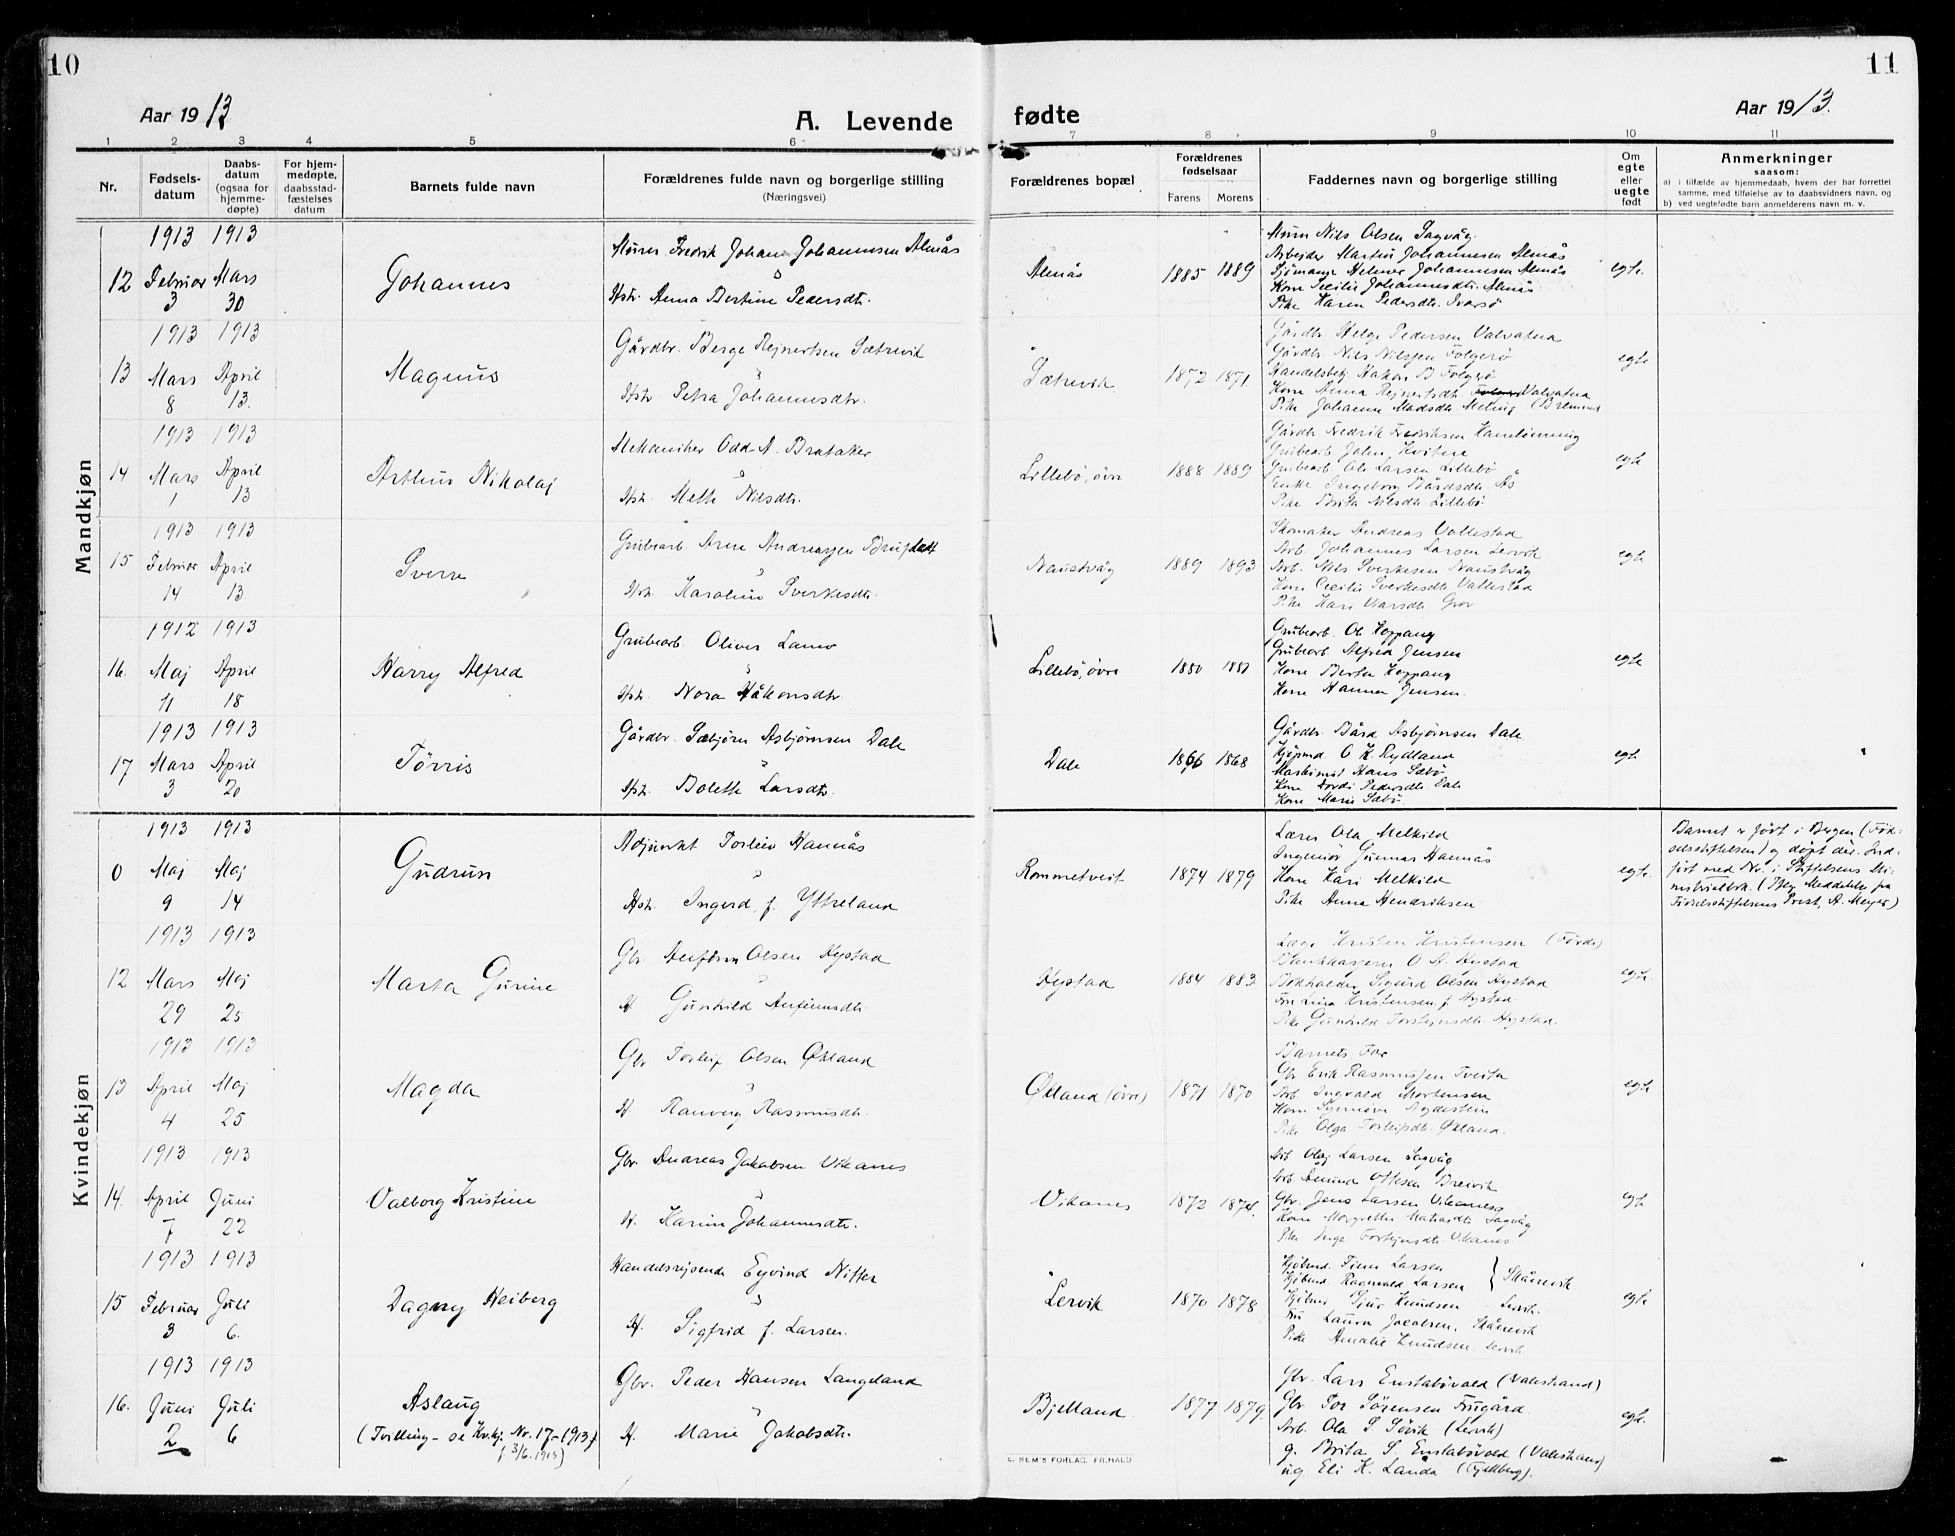 10
11
Aar 1913
A. Levende fødte
Aar 1913.
1 2 3 4 5 6 7 8 9 10 11
Nr.
Fødsels-
datum
Daabs-
datum
(ogsaa for
hjemme-
døpte)
For hjem-
medøpte,
daabsstad-
fæstelses
datum
Barnets fulde navn
Forældrenes fulde navn og borgerlige stilling
(Næringsvei)
Forældrenes bopæl
Forældrenes
fødselsaar
Farens Morens
Faddernes navn og borgerlige stilling
Om
egte
eller
uegte
født
Anmerkninger
saasom:
a) i tilfælde av hjemmedaab, hvem der har forrettet
samme, med tilføielse av to daabsvidners navn, og
b) ved uegtefødte barn anmelderens navn m. v.
Mandkjøn
12
1913 1913
Februar Mars
3 30
Johannes
Murer Fredrik Johan Johannessen Almås
Hstr. Anna Bertine Pedersdtr.
Almås
1885 1889
Murer Nils Olsen Sagvåg
Arbeider Martin Johannesen Almås
Sjömand Helmer Johannesen Almås
Kone Cecilie Johannesdtr. Almås
Pike Karen Pedersdtr. Ivarsö
egte.
13
1913 1913
Mars April
8 13.
Magnus
Gårdbr. Berge Rejnertsen Sætrevik
Hstr. Petra Johannesdtr.
Sætrevik
1872 1871
Gårdbr Helge Pedersen Valvatna
Gårdbr Nils Nilssen Folgerö
Handelsbtj. Håkon B Folgerö
Kone Anna Rejnertsdtr. Valvatna
Pike Johanne Madsdtr. Meling (Bremnes)
egte
14
1913 1913
Mars April
1 13
Arthur Nikolaj
Mekaniker Odd A. Brataker
Hstr. Mette Nilsdtr.
Lillebö, övre
1888 1889
Gårdbr Fredrik Fredriksen
Grubearb John Hvitere
Grubearb Ole Larsen Lillebö
Enke Ingeborg Bårdsdtr. Ås
Pike Brita Nilsdtr Lillebö
egte
15
1913 1913
Februar April
14 13
Sverre
Grubearb Arne Andreassen
Hstr. Karoline Sverkesdtr.
Naustvåg
1889 1893
Skomaker Andreas Vallestad
Arb. Johannes Larsen Lervik
Arb. Nils Sverkesen Naustvåg
Kone Cecilie Sverkesdtr Vallestad
Pike Kari Grov
egte
16.
1912 1913
Maj April
11 18
Harry Alfred
Grubearb. Oliver
Hstr. Nora Håkonsdtr.
Lillebö, övre
1880
Grubearb. Ole Koppang
Grubearb Alfred Jensen
Kone Berta Koppang
Kone Hanna Jensen.
egte
17
1913 1913
Mars April
3 20
Törris
Gårdbr. Sæbjörn Asbjörnsen Dale
Hstr. Bolette Larsdtr.
Dale
1866 1868
Gårdbr Bård Asbjörnsen Dale
Kjöpmd O. K. Rydland
Maskinist Hans Sæbö
Kone Pedersdtr. Dale
Kone Marie Sæbö
egte
Kvindekjøn
0
1913 1913
Maj Maj
9 14
Gudrun
Adjunkt Torleiv Hannås
Hstr. Ingerd f. Ytreland
Rommetveit
1874 1879
Lærer Ola Melkild
Ingeniör Gunnar Hannås
Kone Kari Melkild
Pike Anna Hendriksen
egte.
Barnet er födt i Bergen (Föd-
selsstiftelsen) og döpt der. Ind-
fört med Nr. i Stiftelsens Mi-
nisterialbok. (Iflg. Meddelelse fra
Födselsstiftelsens Prest, A. Meyer)
12
1913 1913
Mars Maj
29 25
Marta Gurine
Gbr Olsen Hystad
H. Gunhild
Hystad
1884 1883
Læge Kristen Kristensen (Förde)
Bankkasserer O A. Hystad
Bokholder Sigurd Olsen Hystad
Fru Lina Kristensen f. Hystad
Pike Gunhild Torsteinsdtr. Hystad.
egte.
13
1913 1913
April Maj
4 25
Magda
Gbr Torleif Olsen Økland
H. Ranveig Rasmusdtr.
Økland (övre)
1871 1870
Barnets Far
Gbr Erik Rasmussen Tveita
Arb. Ingvald Mortensen
Kone Synnöve
Pike Olga Torleifsdtr. Økland.
egte
14.
1913 1913
April Juni
7 22
Valborg Kristine
Gbr. Andreas Jakobsen Vikanes
H. Karine Johannesdtr.
Vikanes
1872 1874.
Arb Olaj Larsen Sagvåg
Arb Amund Ottesen Breivik
Gbr. Jens Larsen Vikanes
Kone Margrethe Sagvåg
Pike Inga Vikanes
egte
15
1913 1913
Februar Juli
3 6.
Dagny Heiberg
Handelsrejsende Eyvind Nitter
H. Sigfrid f. Larsen.
Lervik
1870 1878
Kjöbmd. Finn Larsen
Kjöbmd Ragnvald Larsen } Skånevik
Kjöbmd Sjur Knudsen - Lervik.
Fru Laura Jacobsen, Skånevik
Pike Amalie Knudsen. Lervik
egte
16.
1913 1913
Juni Juli
2 6
Aslaug
(Tvilling - se Kv.kj. Nr. 17-1913)
f. 3/6. 1913)
Gbr. Peder Hansen Langeland
H. Marie Jakobsdtr.
Bjelland
1877 1879.
Gbr. Lars Enstabövold (Valestrand)
Gbr Tor Sörensen Frugård
Arb. Ola S Sörvik (Lervik)
g. Brita S. Enstabövold (Valestrand)
ug Eli K. Landa (Fjeldberg).
egte.
SEM'S FORLAG, FR.HALD